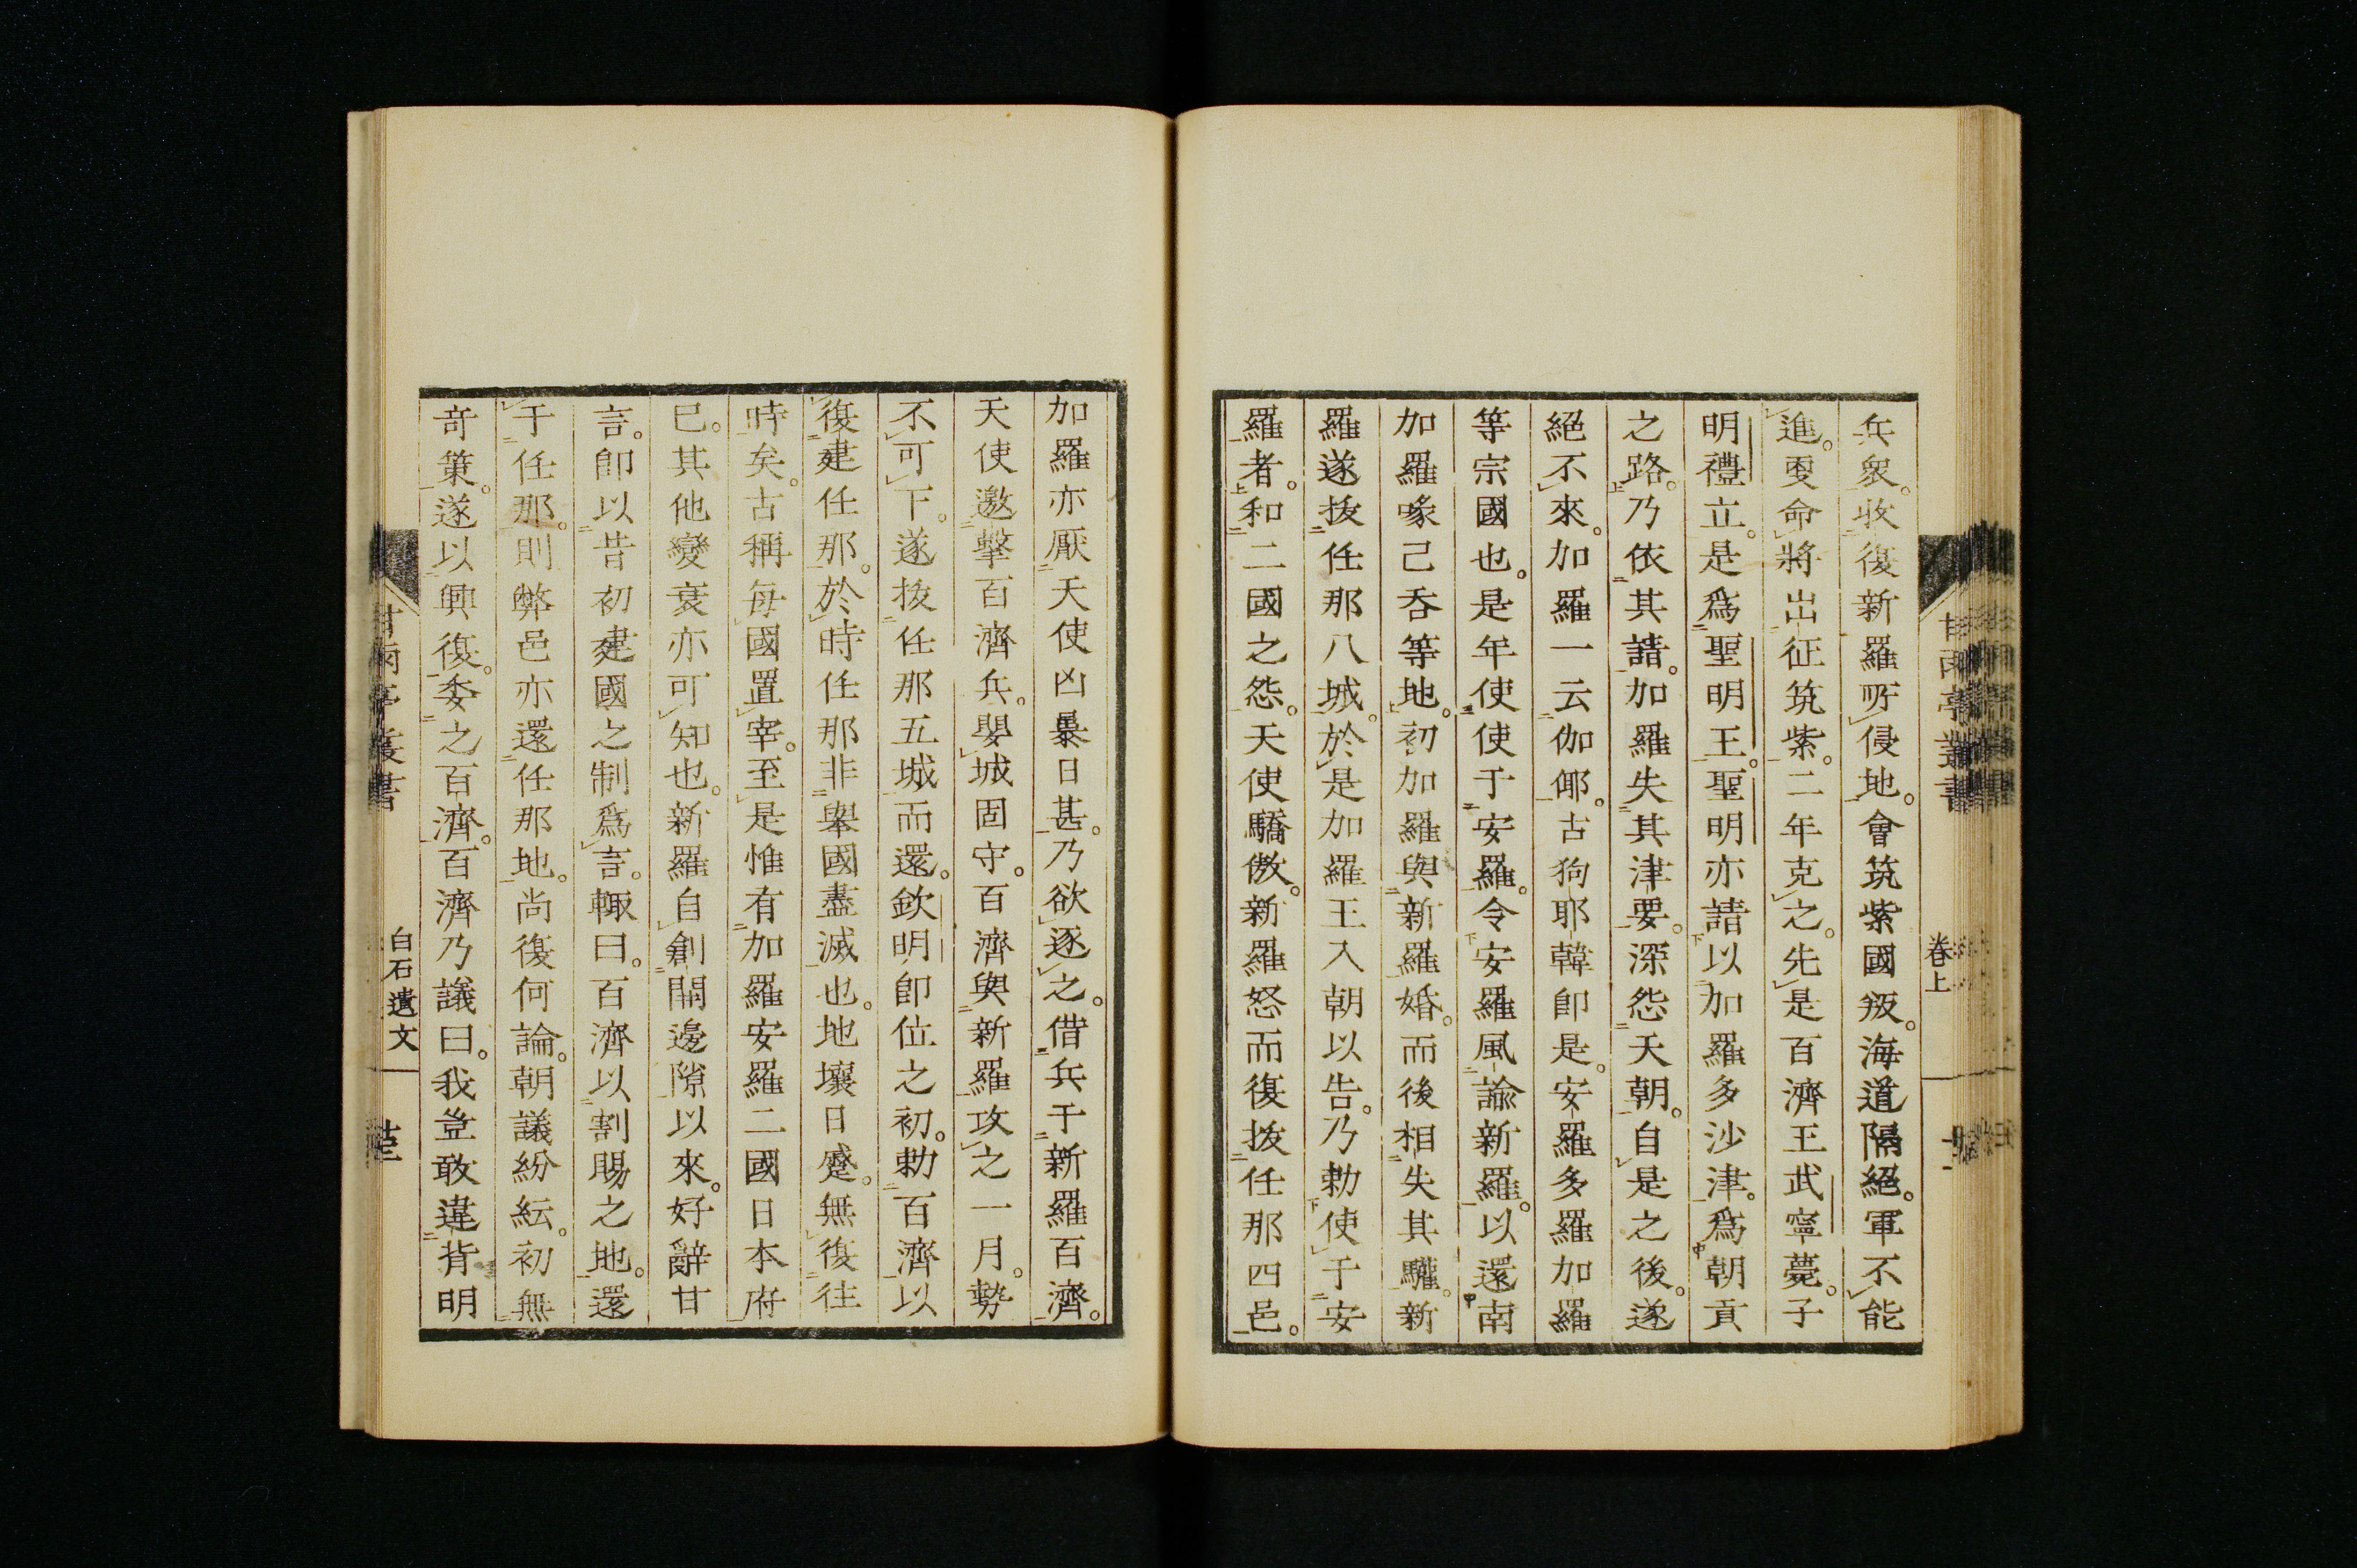 兵衆。收復新羅所侵地。會筑紫國叛。海道隔絕。軍不能
進。更命將出征筑紫。二年克之。先是百濟王武寧薨。子
明禮立。是爲聖明王。聖明亦請以加羅多沙津。爲朝貢
之路。乃依其請。加羅失其津要。深怨天朝。自是之後。遂
絕不來。加羅一云伽倻。古狗耶韓卽是。安羅多羅加羅
等宗國也。是年使使于安羅。令安羅風諭新羅。以還南
加羅喙己呑等地。初加羅與新羅婚。而後相失其驩。新
羅遂拔任那八城。於是加羅王入朝以告。乃勅使于安
羅者。和二國之怨。天使驕傲。新羅怒而復拔任那四邑。
卷上
加羅亦厭天使凶暴日甚。乃欲逐之。借兵于新羅百濟。
天使邀擊百濟兵。嬰城固守。百濟與新羅攻之一月。勢
不可下。遂拔任那五城而還。欽明卽位之初。勅百濟以
復建任那。於時任那非舉國盡滅也。地壤日蹙。無復往
時矣。古稱每國置宰。至是惟有加羅安羅二國日本府
已。其他變衰亦可知也。新羅自創開邊隙以來。好辭甘
言。卽以昔初建國之制爲言。輙曰。百濟以割賜之地。還
于任那。則弊邑亦還任那地。尚復何論。朝議紛紜。初無
奇策。遂以興復。委之百濟。百濟乃議曰。我豈敢違背明
甘雨亭叢書
白石遺文